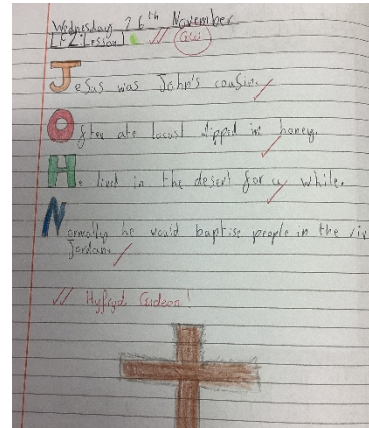 Wednesday 26th November
LF2: Lesson 1 GW
Jesus was John's cousin.
Often ate locust dipped in honey.
He lived in the desert for a while.
Normally he would baptise people in the riv
Jordan.
Hyfryd Gideon!